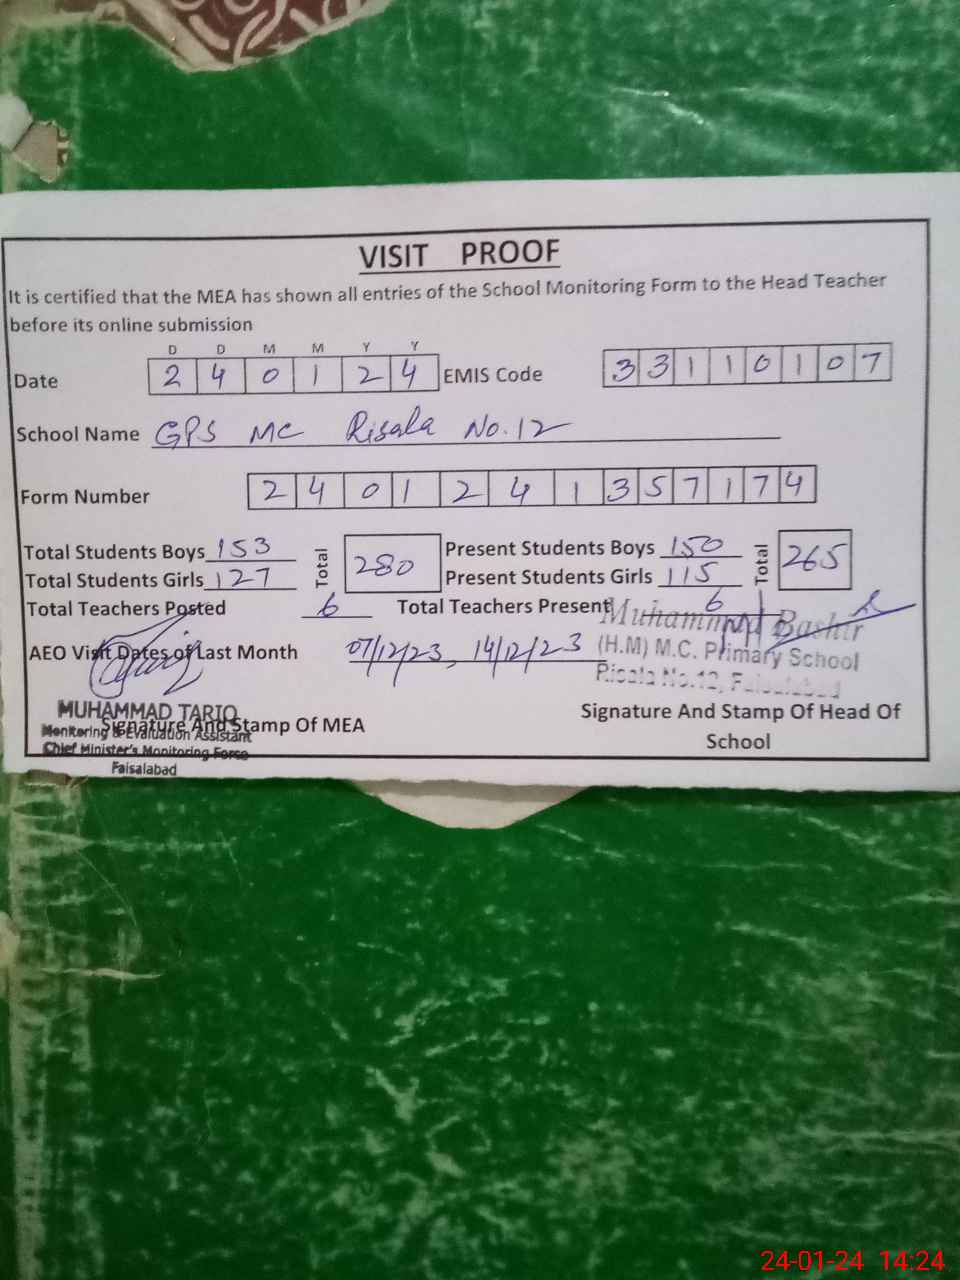 VISIT PROOF
It is certified that the MEA has shown all entries of the School Monitoring Form to the Head Teacher
before its online submission
D D M M Y Y
Date 2 4 0 1 2 4 EMIS Code 3 3 1 1 0 1 0 7
School Name GPS MC Risala No. 12
Form Number 2 4 0 1 2 4 1 3 5 7 1 7 4
Total Students Boys 153 Total 280 Present Students Boys 150 Total 265
Total Students Girls 127 Present Students Girls 115
Total Teachers Posted 6 Total Teachers Present 6
Muhammad Bashir
AEO Visit Dates of Last Month 07/12/23, 14/12/23 (H.M) M.C. Primary School
Risala No.12, Faisalabad
MUHAMMAD TARIQ
Signature And Stamp Of MEA Signature And Stamp Of Head Of
School
Monitoring & Evaluation Assistant
Chief Minister's Monitoring Force
Faisalabad
24-01-24 14:24